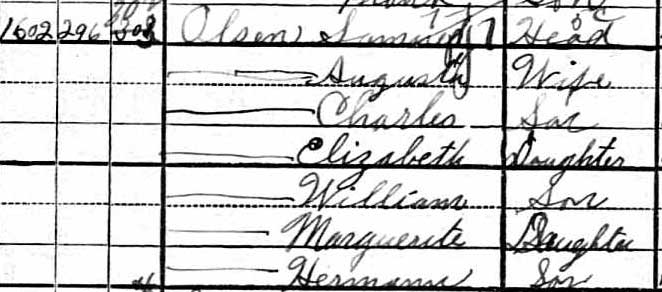 Son
1602 296 303 Olsen Head
Augusta Wife
Charles Son
Elizabeth Daughter
William Son
Marguerite Daughter
Hermann Son